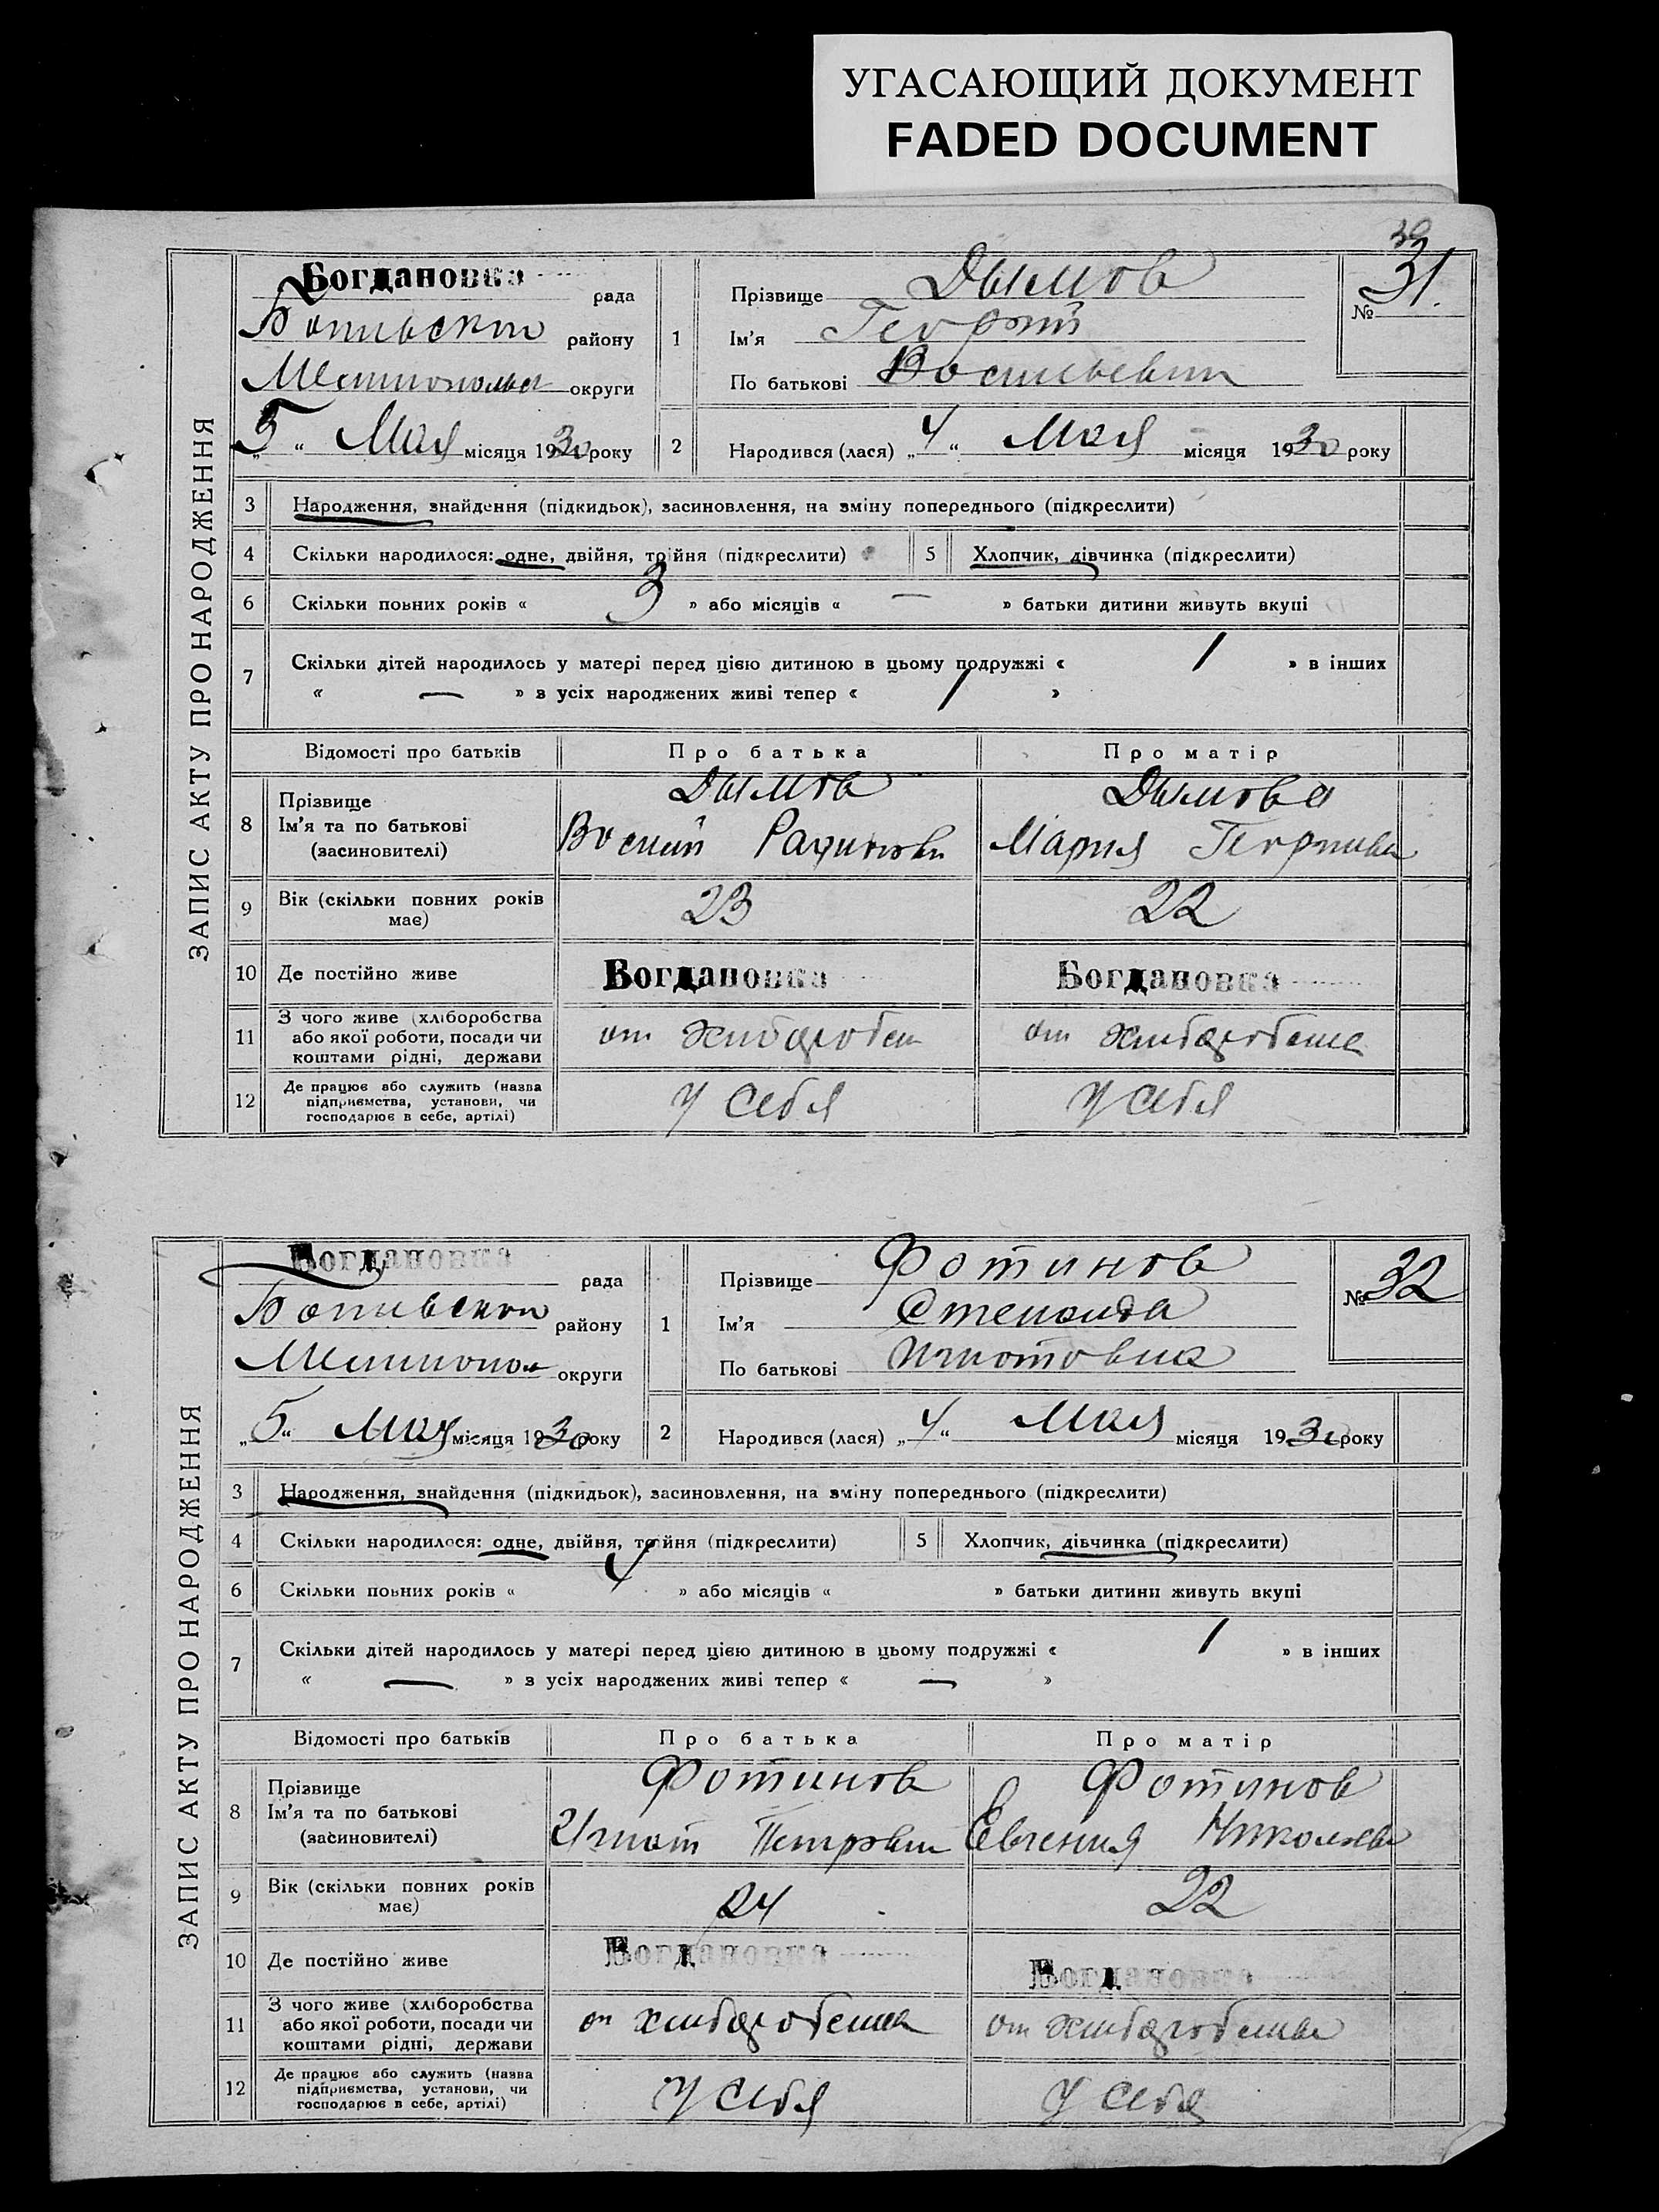 УГАСАЮЩИЙ ДОКУМЕНТ
FADED DOCUMENT
30
ЗАПИС АКТУ ПРО НАРОДЖЕННЯ
Богдановка рада
району
округи
„5“ Мая місяця 1930 року
1
Прізвище Дымов
Ім'я Георгий
По батькові Васильевич
№ 31.
2 Народився (лася) „4“ Мая місяця 1930 року
3 Народження, знайдення (підкидьок), засиновлення, на зміну попереднього (підкреслити)
4 Скільки народилося: одне, двійня, тройня (підкреслити) 5 Хлопчик, дівчинка (підкреслити)
6 Скільки повних років « 3 » або місяців « — » батьки дитини живуть вкупі
7 Скільки дітей народилось у матері перед цією дитиною в цьому подружжі « 1 » в інших
« — » з усіх народжених живі тепер « 1 »
Відомості про батьків Про батька Про матір
8 Прізвище Дымов Дымова
Ім'я та по батькові Мария
(засиновителі)
9 Вік (скільки повних років має) 23 22
10 Де постійно живе Богдановка Богдановка
11 З чого живе (хліборобства
або якої роботи, посади чи от от
коштами рідні, держави
12 Де працює або служить (назва
підприємства, установи, чи У себя У себя
господарює в себе, артілі)
ЗАПИС АКТУ ПРО НАРОДЖЕННЯ
Богдановка рада
району
округи
„5“ Мая місяця 1930 року
1
Прізвище Фотинов
Ім'я Степанида
По батькові Игнатовна
№ 32
2 Народився (лася) „4“ Мая місяця 1930 року
3 Народження, знайдення (підкидьок), засиновлення, на зміну попереднього (підкреслити)
4 Скільки народилося: одне, двійня, тройня (підкреслити) 5 Хлопчик, дівчинка (підкреслити)
6 Скільки повних років « 4 » або місяців « » батьки дитини живуть вкупі
7 Скільки дітей народилось у матері перед цією дитиною в цьому подружжі « 1 » в інших
« — » з усіх народжених живі тепер « — »
Відомості про батьків Про батька Про матір
8 Прізвище Фотинов Фотинов
Ім'я та по батькові Игнат Петрович Евгения
(засиновителі)
9 Вік (скільки повних років має) 24 22
10 Де постійно живе Богдановка Богдановка
11 З чого живе (хліборобства
або якої роботи, посади чи от от
коштами рідні, держави
12 Де працює або служить (назва
підприємства, установи, чи У себя У себя
господарює в себе, артілі)